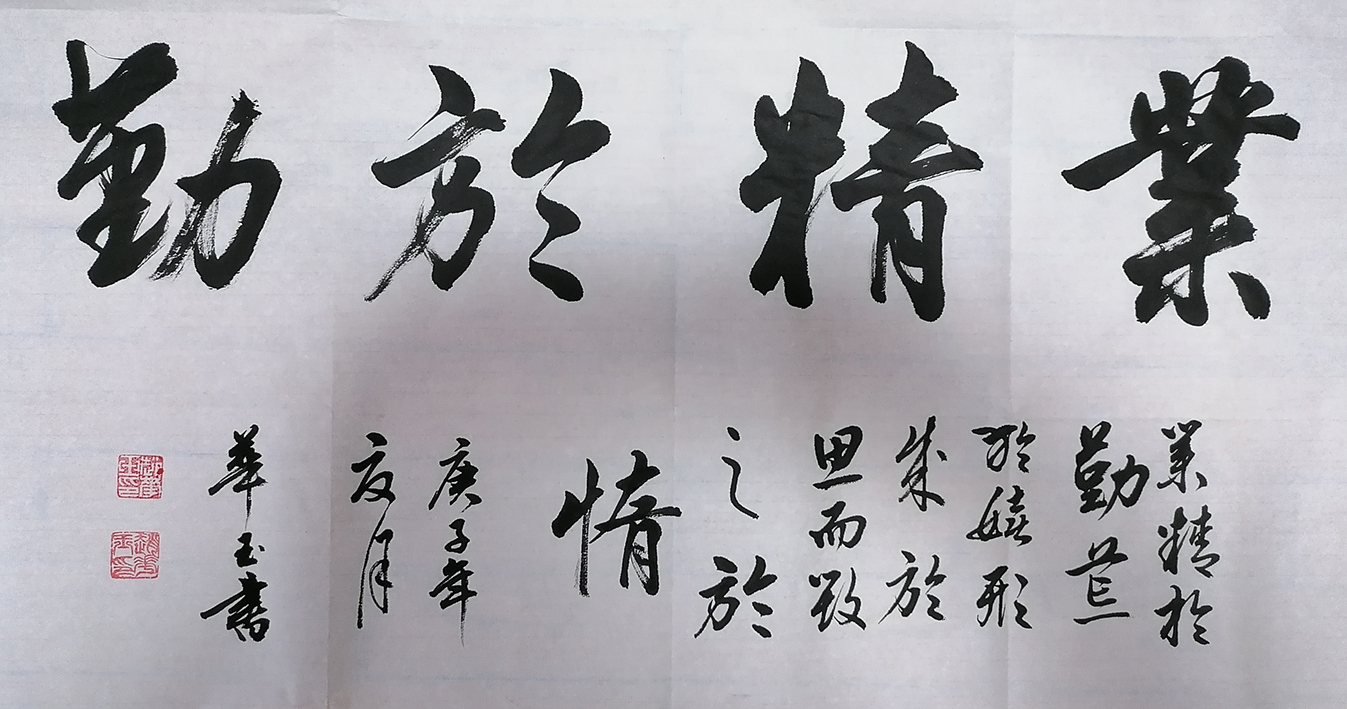 業精於勤
業精於
勤荒
於嬉形
成於
思而毀
之於
惰
庚子年
夏月
華玉書